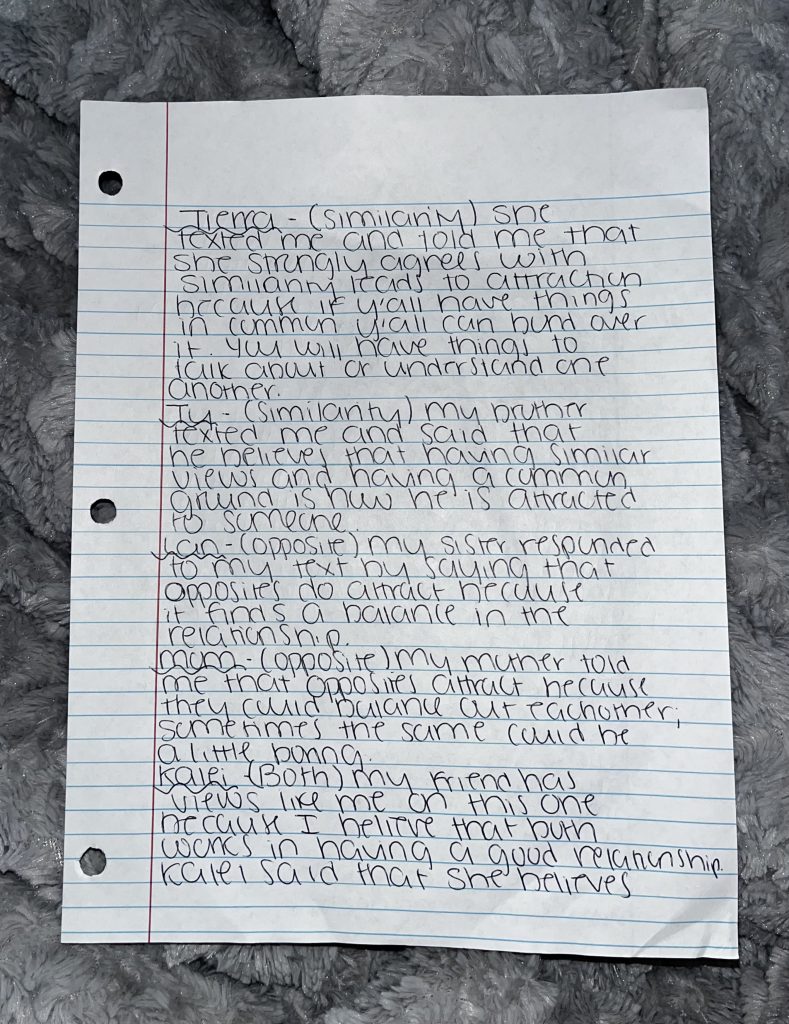 Tierra - (similarity) she
texted me and told me that
she strongly agrees with
similarity leads to attraction
because if y'all have things
in common y'all can bond over
it. you will have things to
talk about or understand one
another.
Ty - (similarity) my brother
texted me and said that
he believes that having similar
views and having a common
ground is how he is attracted
to someone.
Lan - (opposite) my sister responded
to my text by saying that
opposites do attract because
it finds a balance in the
relationship.
mom - (opposite) my mother told
me that opposites attract because
they could balance out eachother;
sometimes the same could be
a little boring.
Kalei - (Both) my friend has
views like me on this one
because I believe that both
works in having a good relationship.
Kalei said that she believes